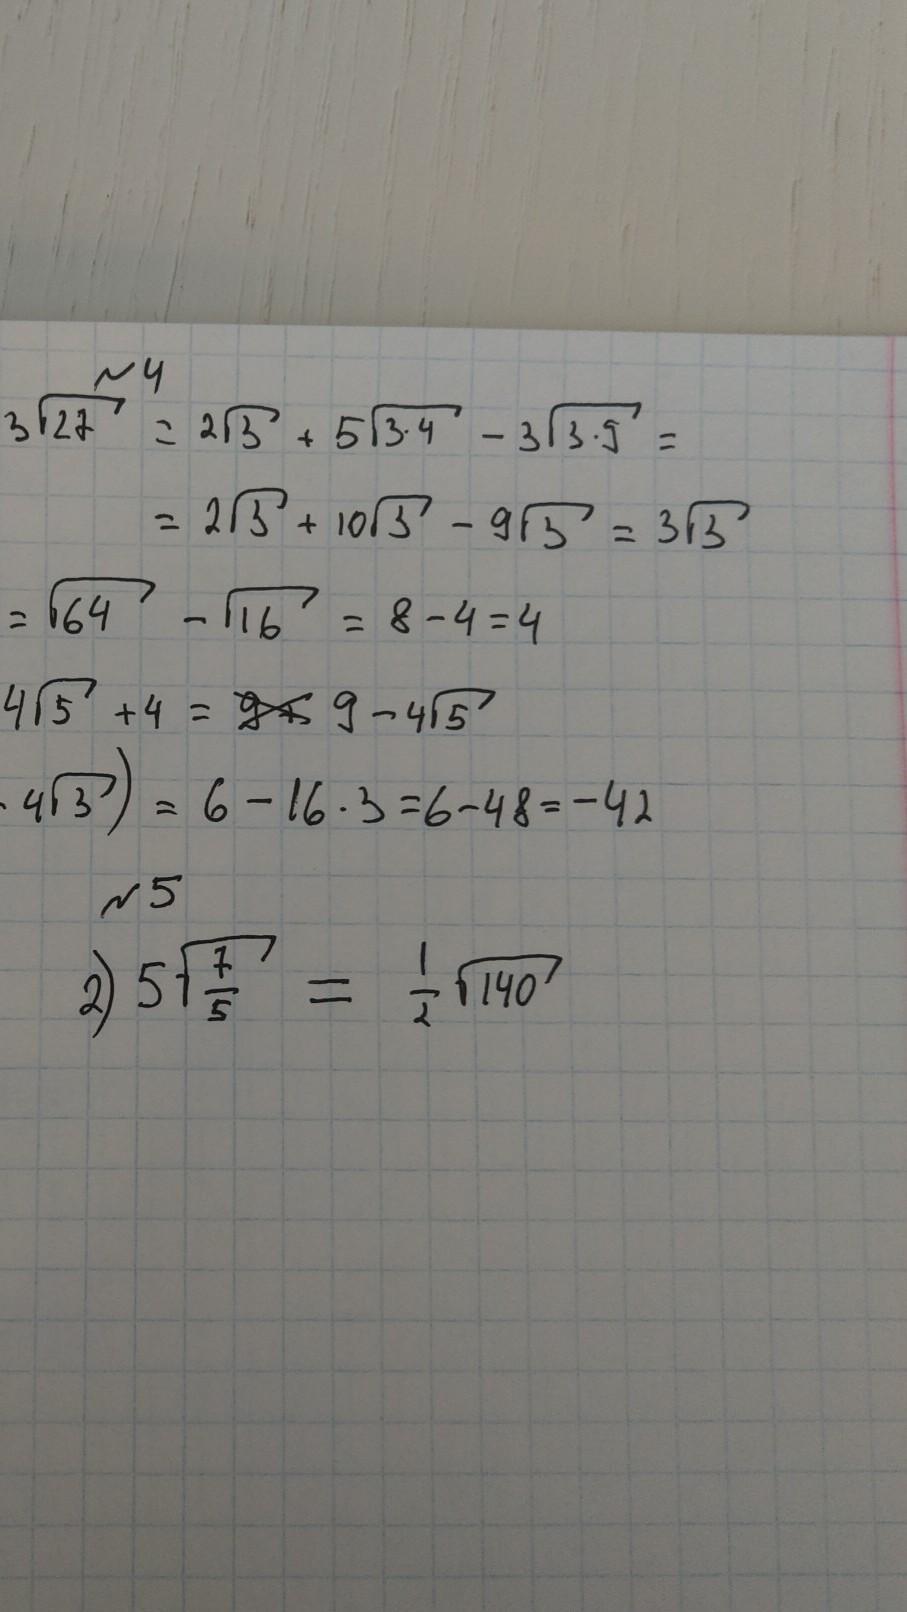 №4
3√27 = 2√3 + 5√3·4 - 3√3·9 =
= 2√3 + 10√3 - 9√3 = 3√3
= √64 - √16 = 8 - 4 = 4
4√5 + 4 = 9 - 4√5
· 4√3) = 6 - 16·3 = 6 - 48 = -42
№5
2) 5√7/5 = 1/2 √140